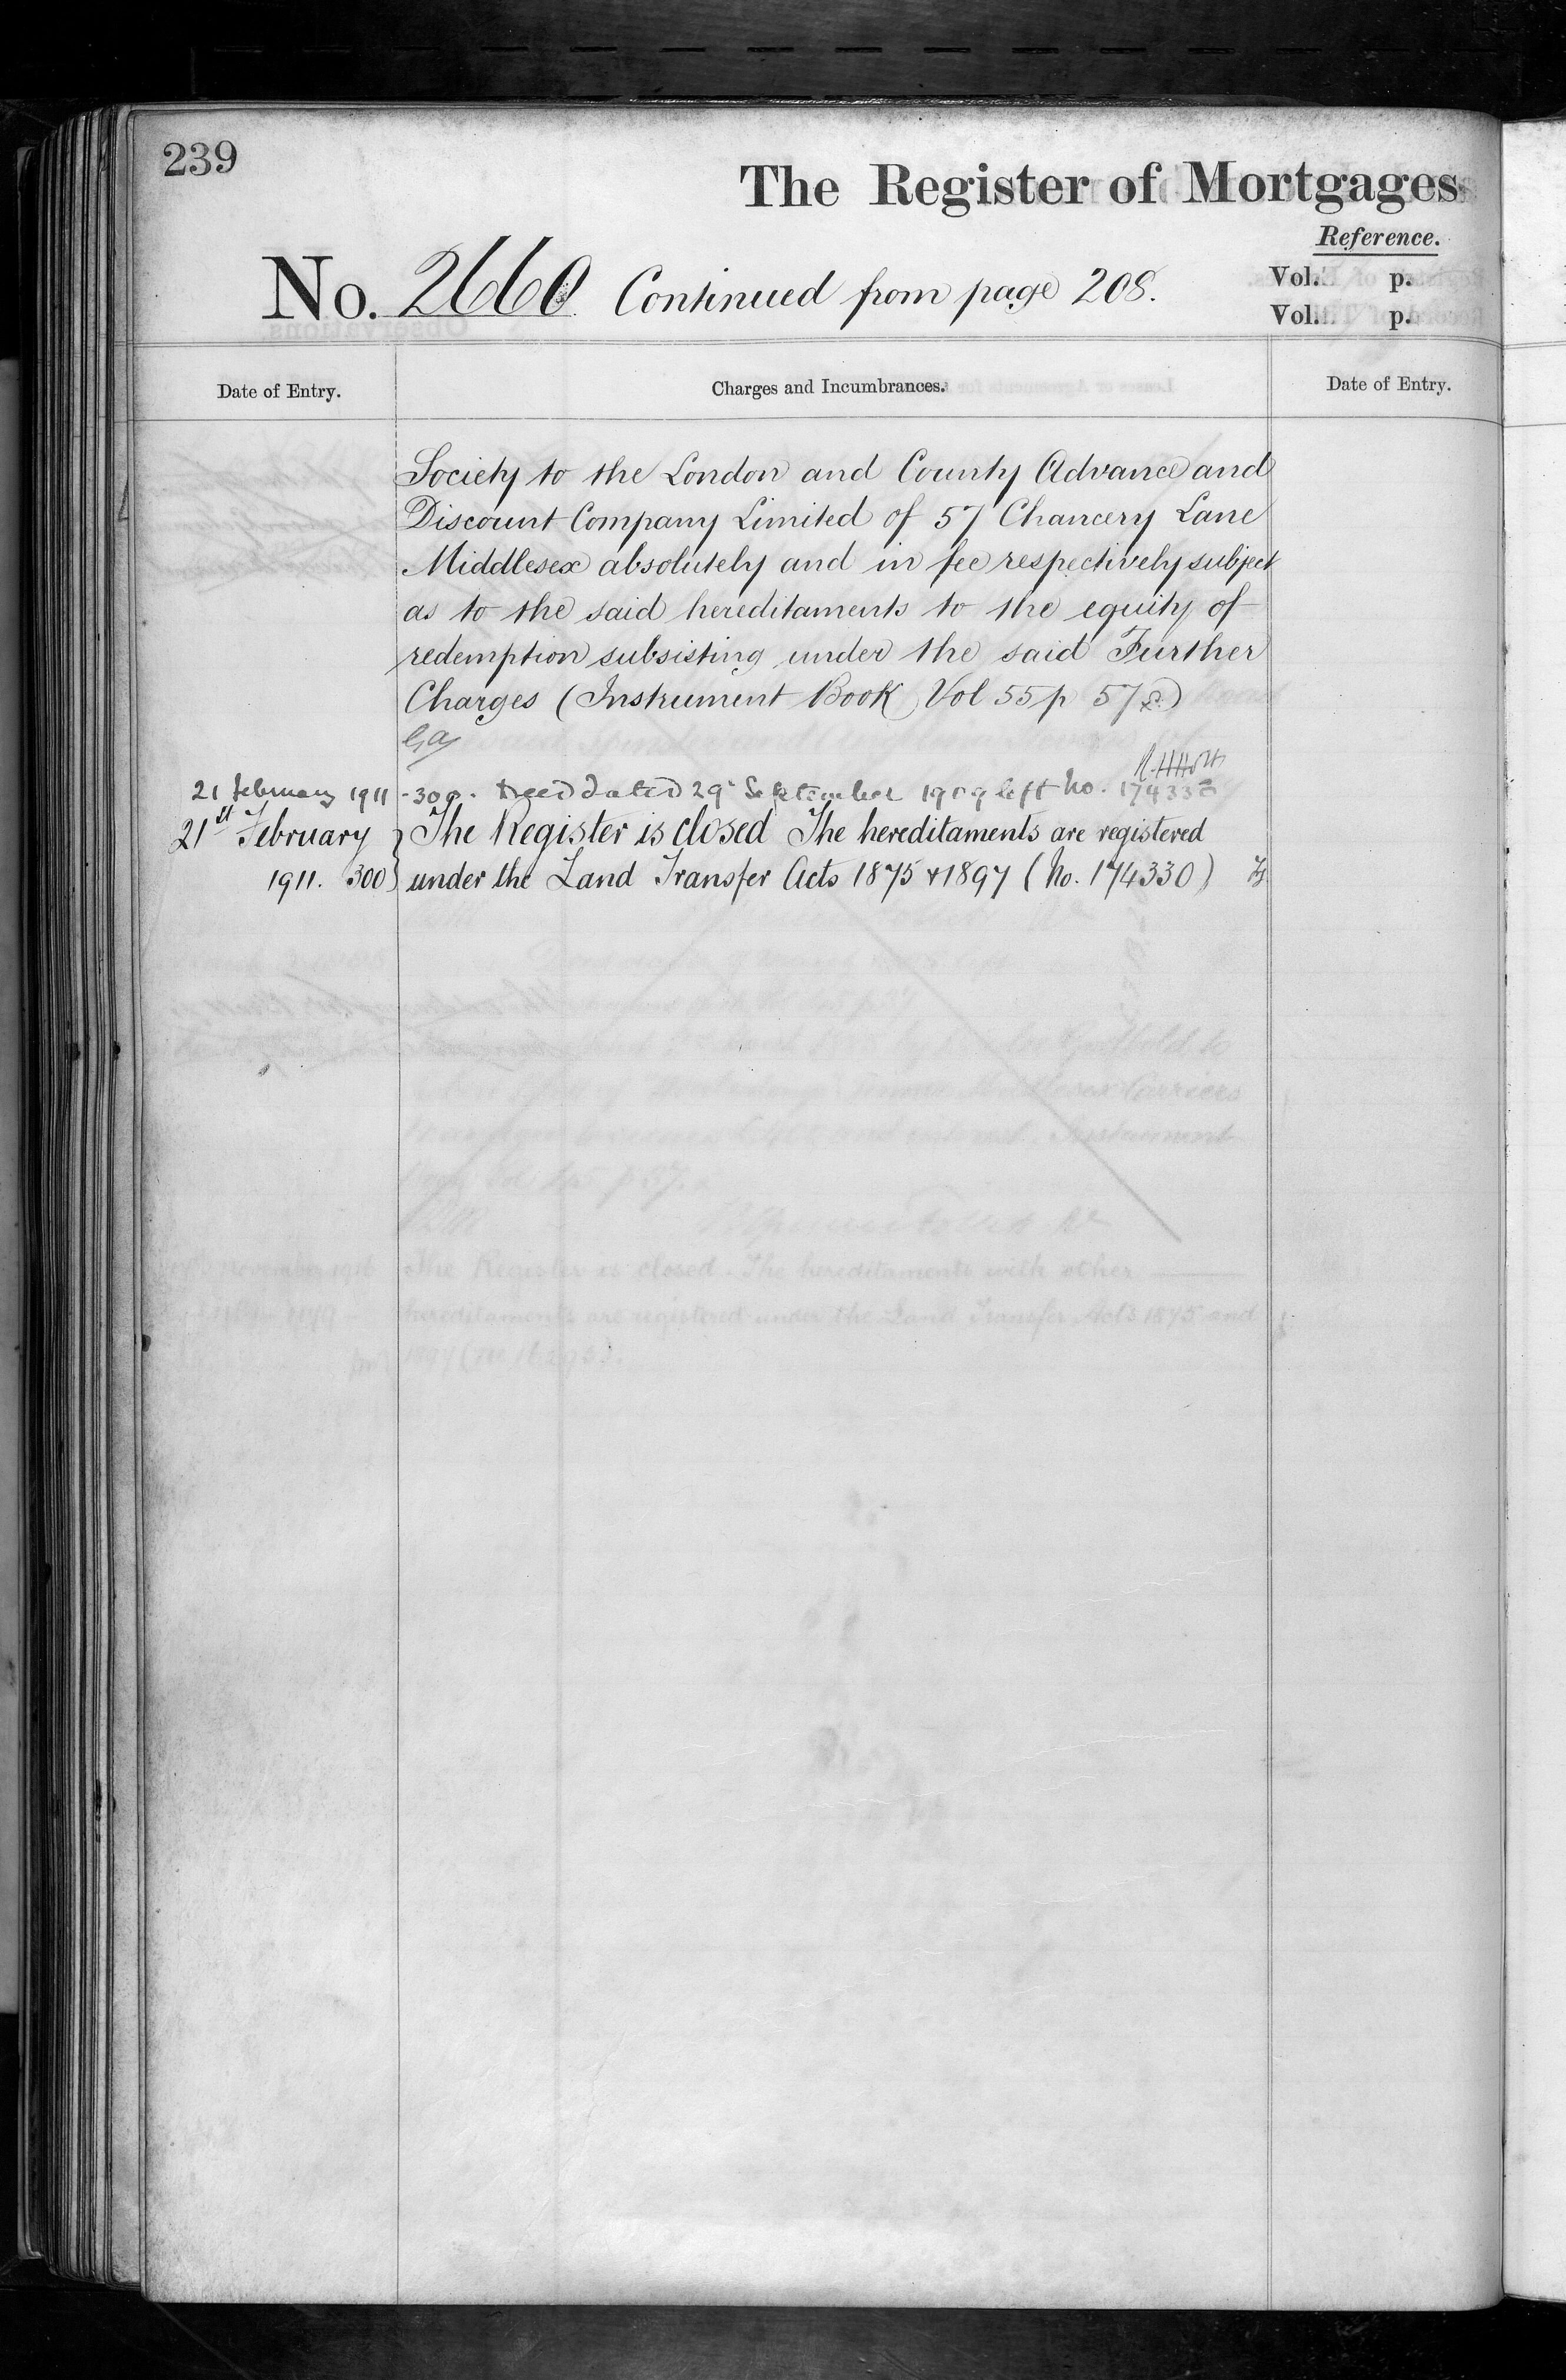 239
The Register of Mortgages
Reference.
No. 2660 Continued from page 208.
Vol. p.
Vol. p.
Date of Entry.
Charges and Incumbrances.
Date of Entry.
Society to the London and County Advance and
Discount Company Limited of 57 Chancery Lane
Middlesex absolutely and in fee respectively subject
as to the said hereditaments to the equity of
redemption subsisting under the said Further
Charges (Instrument Book Vol 55 p 57)
21 February 1911 - 300. Deed dated 29 September 1909 left No. 174330
21st February 1911. 300
The Register is closed The hereditaments are registered
under the Land Transfer Acts 1875 & 1897 (No. 174330)
The Register is closed. The hereditaments with other
hereditaments are registered under the Land Transfer Acts 1875 and